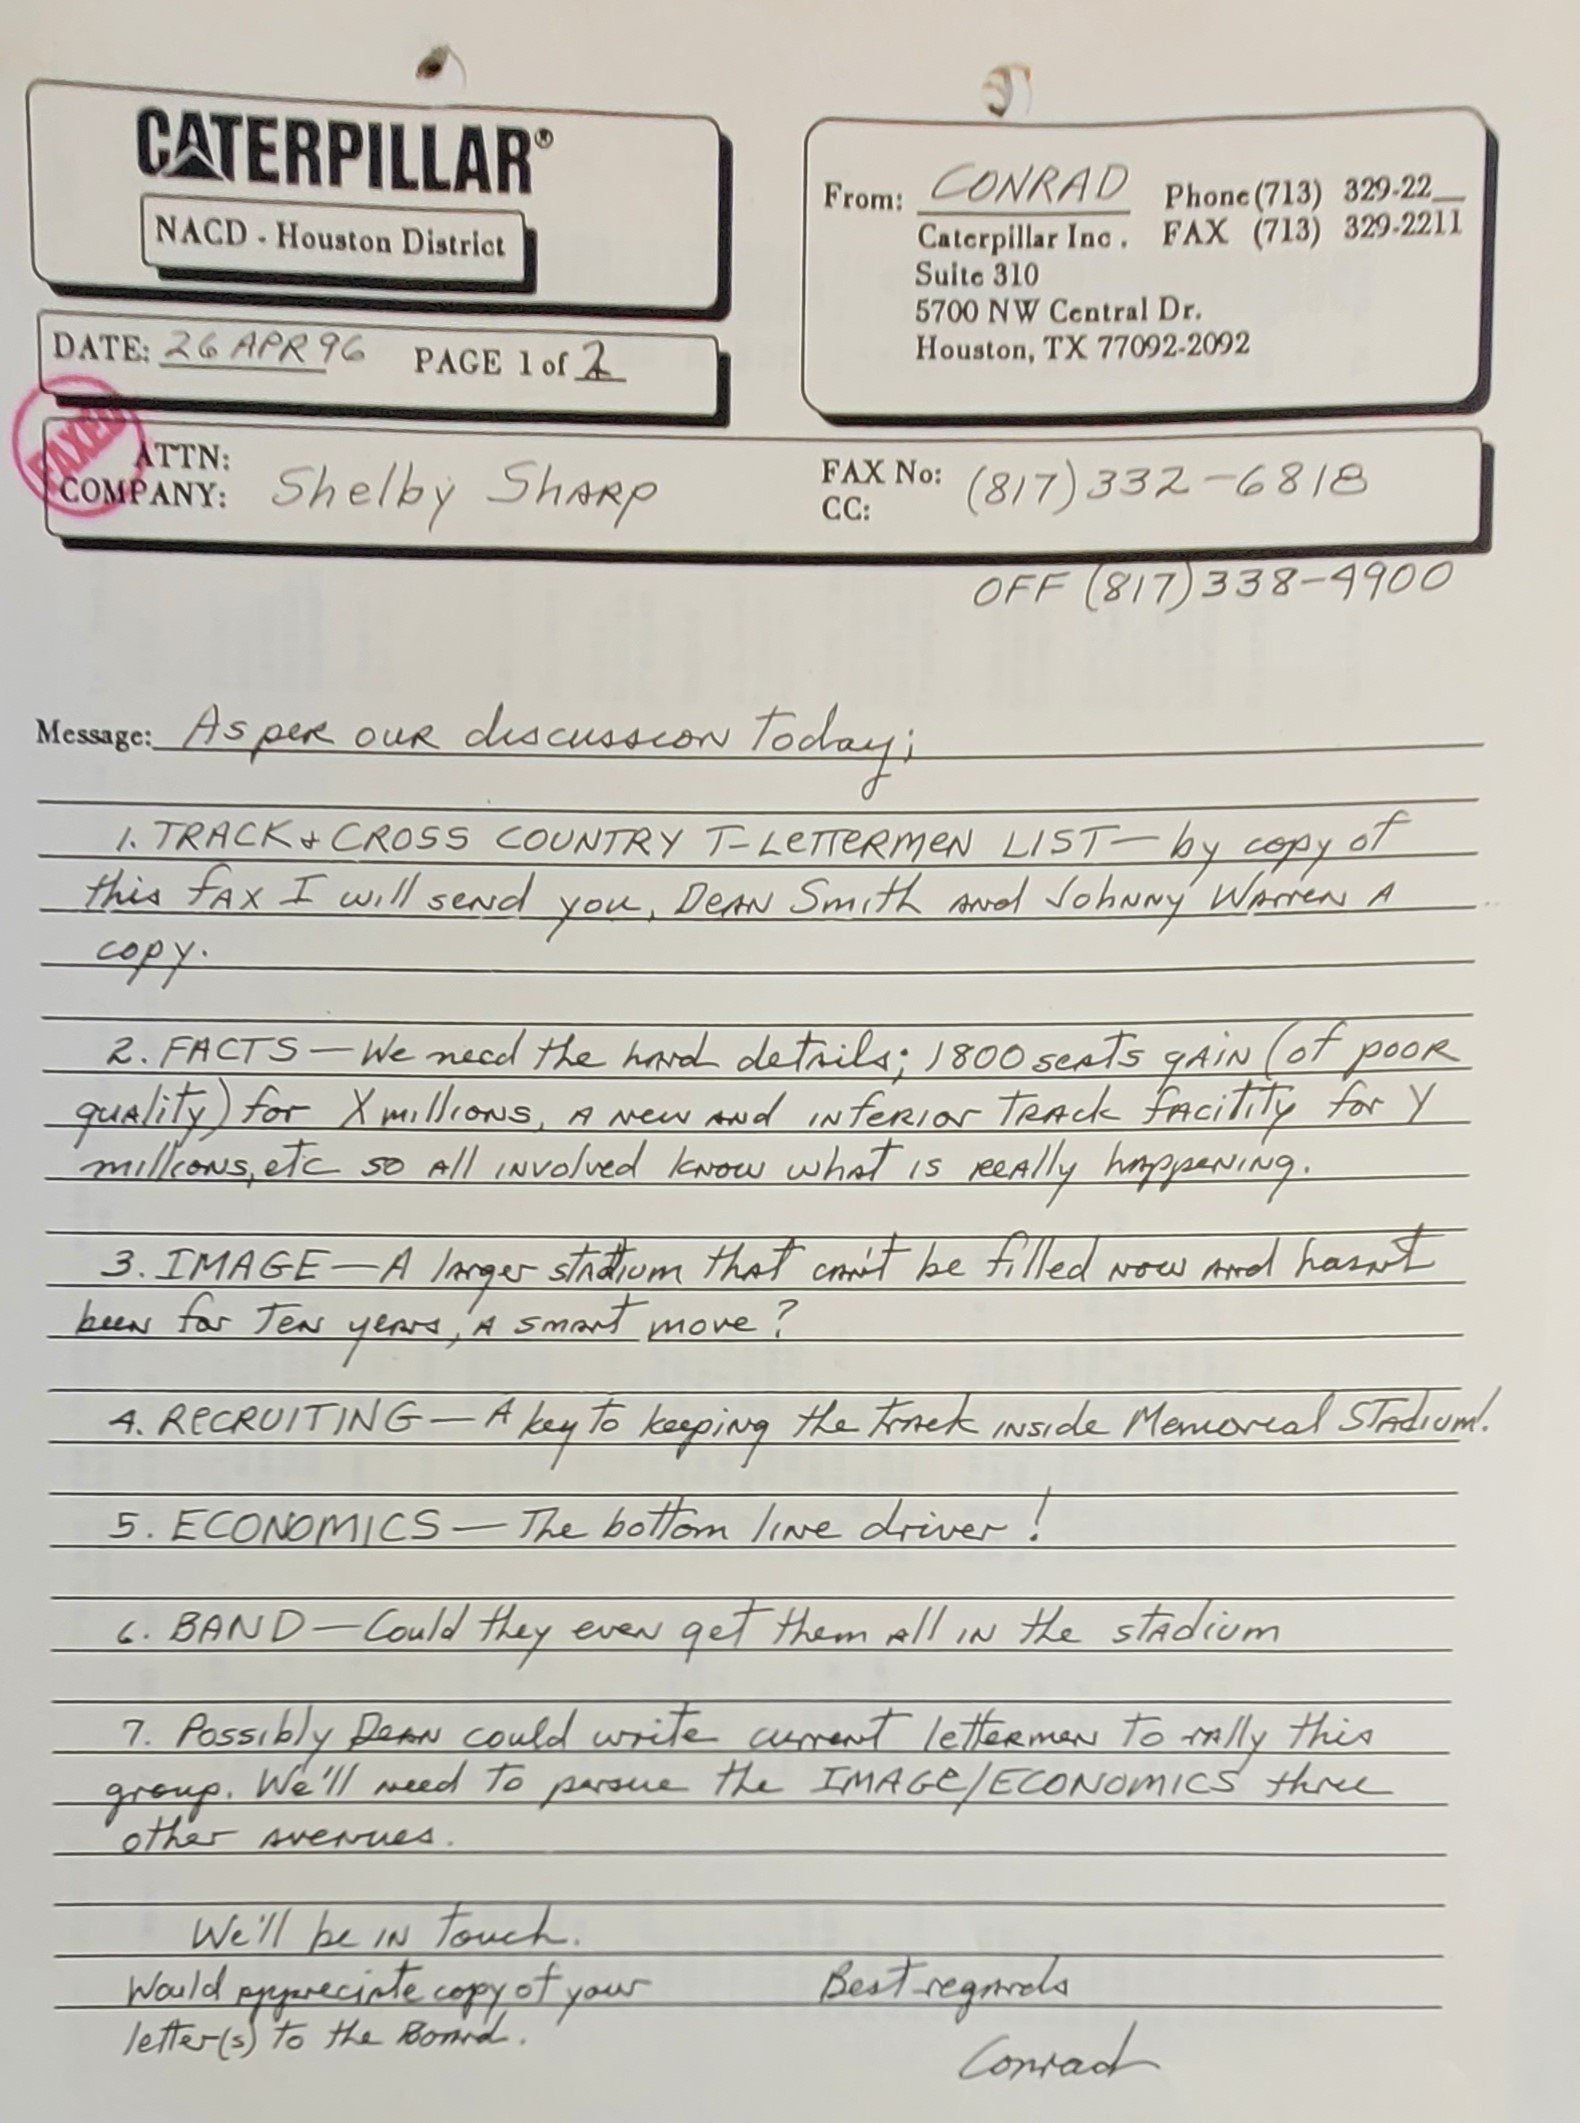 CATERPILLAR®
NACD - Houston District
From: CONRAD Phone (713) 329-22__
Caterpillar Inc. FAX (713) 329-2211
Suite 310
5700 NW Central Dr.
Houston, TX 77092-2092
DATE: 26 APR 96 PAGE 1 of 2
FAXED
ATTN:
COMPANY: Shelby Sharp
FAX No: (817) 332-6818
CC:
OFF (817) 338-4900
Message: As per our discussion today;
1. TRACK + CROSS COUNTRY T-LETTERMEN LIST — by copy of
this fax I will send you, Dean Smith and Johnny Warren a
copy.
2. FACTS — We need the hard details; 1800 seats gain (of poor
quality) for X millions, a new and inferior track facitity for Y
millions, etc so all involved know what is really happening.
3. IMAGE — A larger stadium that can't be filled now and hasn't
been for ten years, a smart move?
4. RECRUITING — A key to keeping the track inside Memorial Stadium!
5. ECONOMICS — The bottom line driver!
6. BAND — Could they even get them all in the stadium
7. Possibly Dean could write current lettermen to rally this
group. We'll need to persue the IMAGE/ECONOMICS three
other avenues.
We'll be in touch.
Would appreciate copy of your
letter(s) to the Board.
Best regards
Conrad